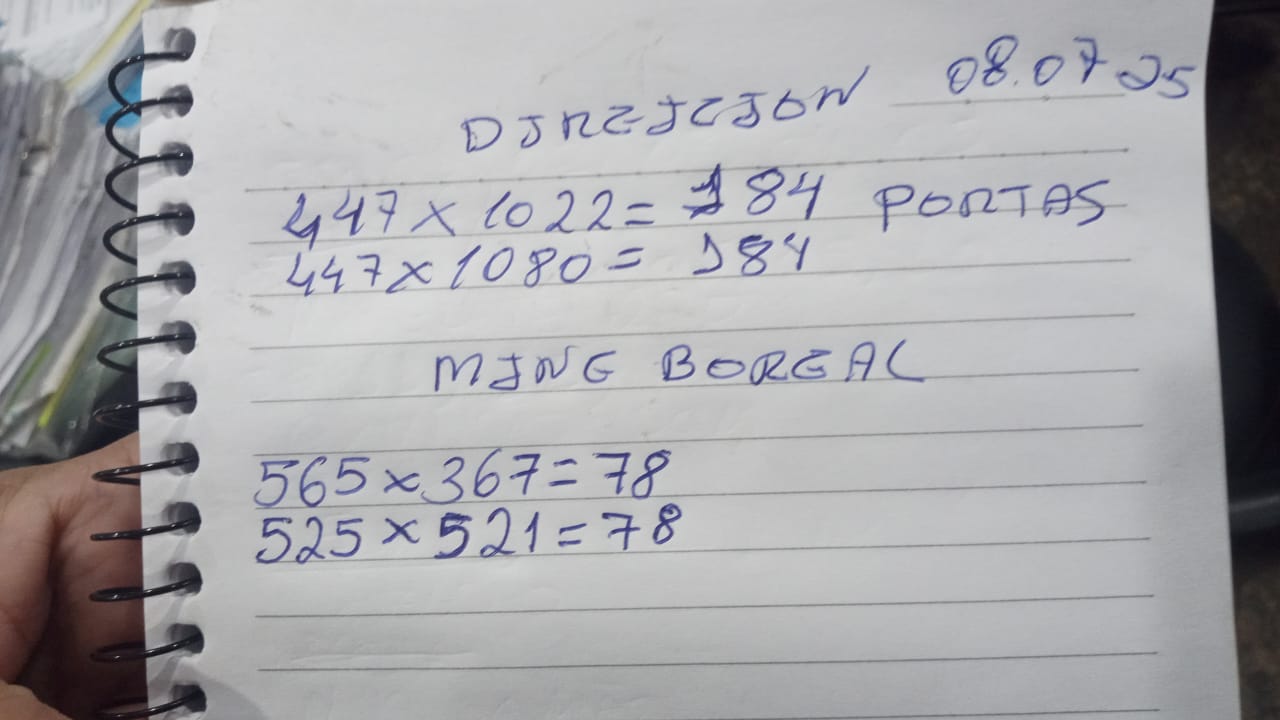 DIREICION 08.07 25
447 x 1022 = 184 PORTAS
447 x 1080 = 184
MING BOREAL
565 x 367 = 78
525 x 521 = 78